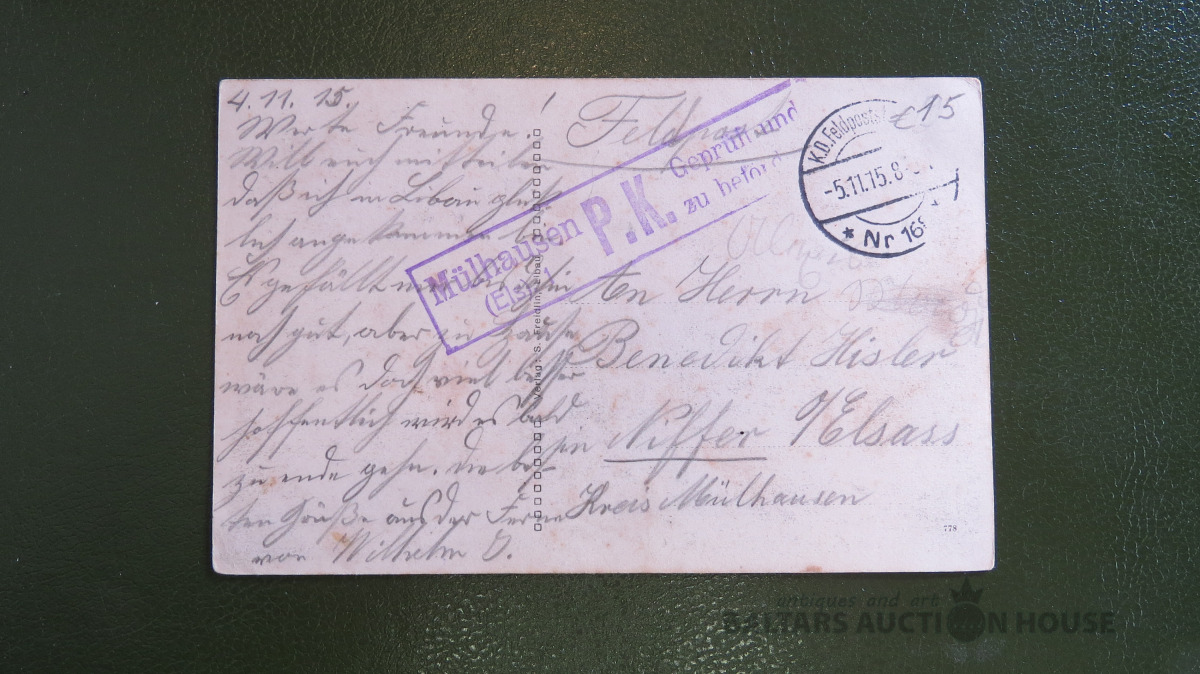 4. 11. 15.
Werte Freunde!
Will euch mitteilen
daß ich in Libau glück
lich angekommen bin
Es gefällt mir bis hin
noch gut, aber zu Hause
wäre es doch viel besser
hoffentlich wird es bald
zu ende gehn. Die bes
ten Grüße aus der Ferne
von Wilhelm J.
Feldpost
Mülhausen
(Els.)
P.K.
Geprüft und
zu beförd
K.D. Feldposts
-5.11.15.8-
* Nr 168
€15
An Herrn
Benedikt Hisler
in Niffer O/Elsass
Kreis Mülhausen
Verlag: S. Freidlin, Libau.
778
antiques and art
BALTARS AUCTION HOUSE